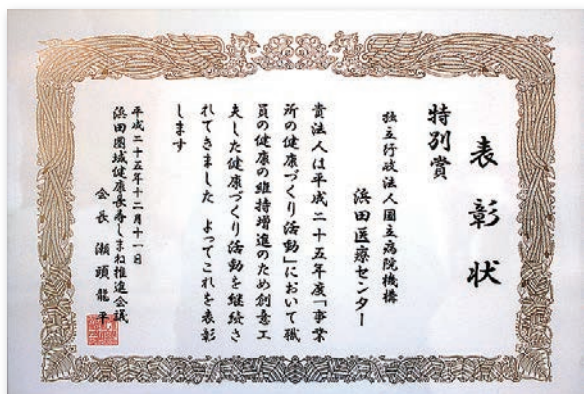 表彰状
特別賞
独立行政法人国立病院機構
浜田医療センター
貴法人は平成二十五年度「事業
所の健康づくり活動」において職
員の健康の維持増進のため創意工
夫した健康づくり活動を継続さ
れてきました よってこれを表彰
します
平成二十五年十二月十一日
浜田圏域健康長寿しまね推進会議
会長 瀬頭龍平